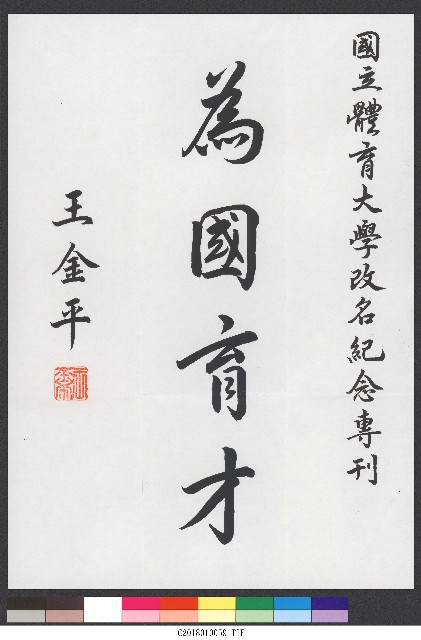 國立體育大學改名紀念專刊
為國育才
王金平
C2018010059.TIF